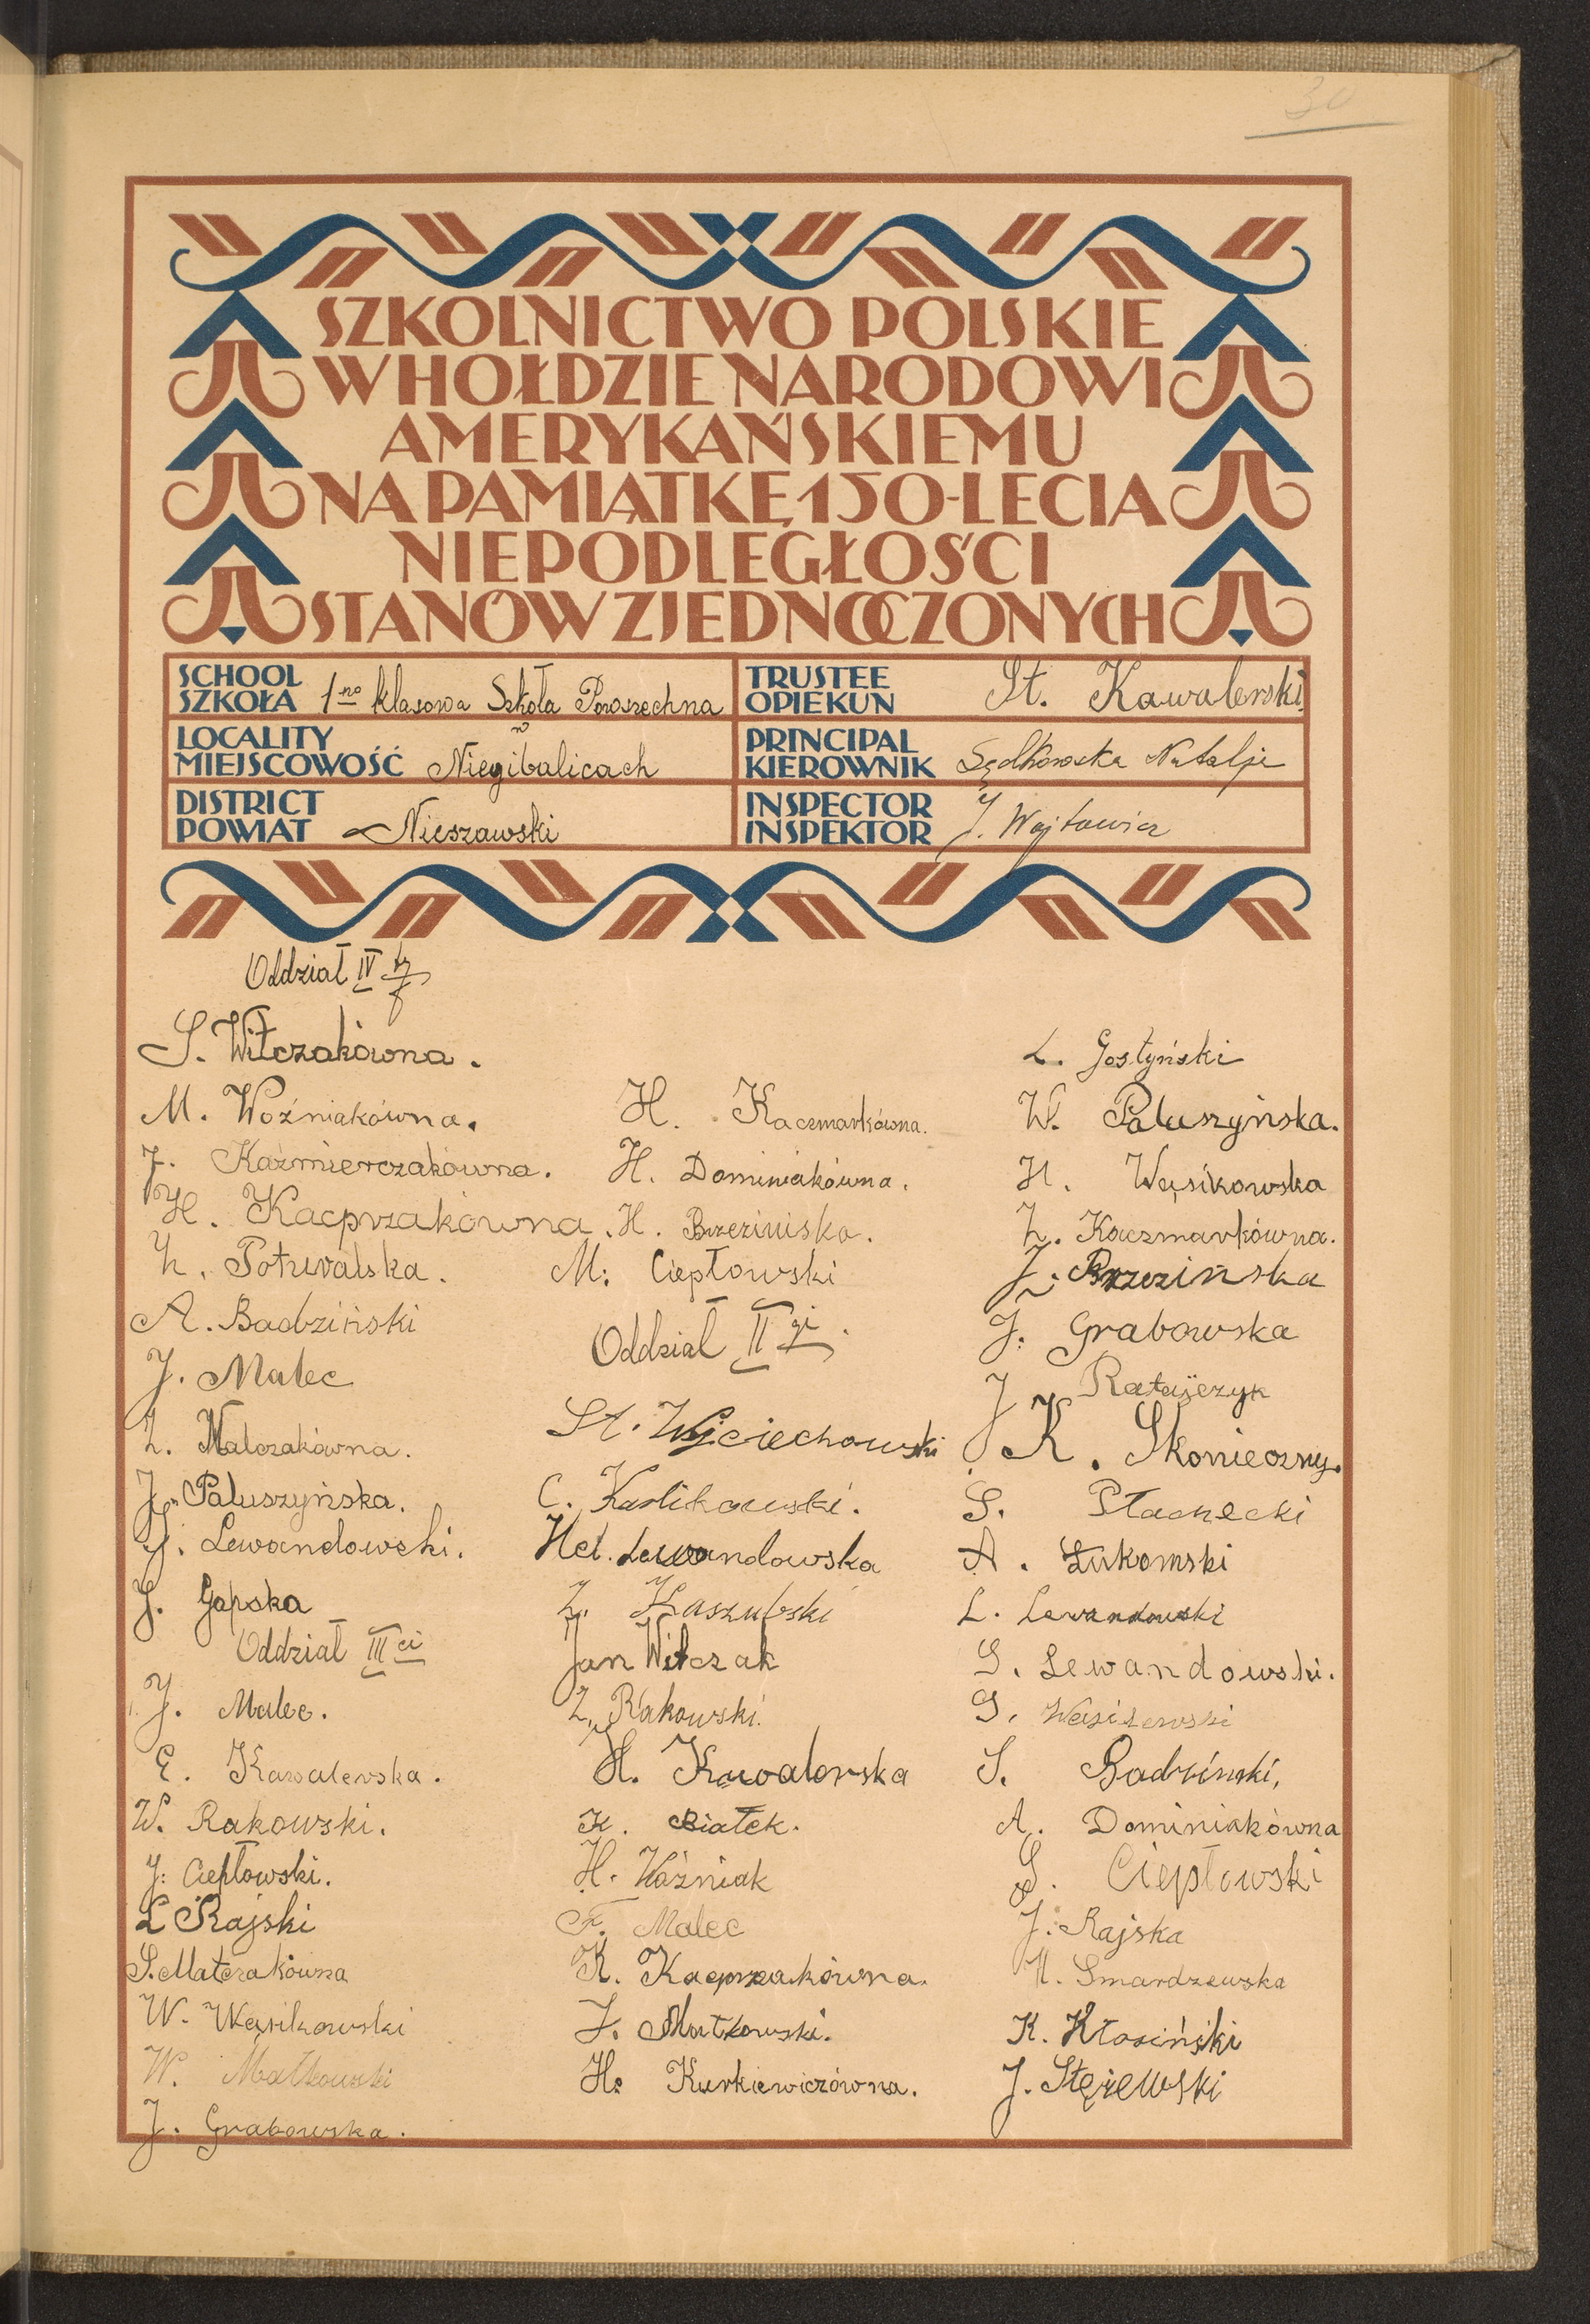 30
SZKOLNICTWO POLSKIE
W HOŁDZIE NARODOWI
AMERYKAŃSKIEMU
NA PAMIĄTKĘ 150-LECIA
NIEPODLEGŁOŚCI
STANÓW ZJEDNOCZONYCH
SCHOOL
SZKOŁA 1no klasowa Szkoła Powszechna
w
LOCALITY
MIEJSCOWOŚĆ Niegibalicach
DISTRICT
POWIAT Nieszawski
TRUSTEE
OPIEKUN St. Kawalerski
PRINCIPAL
KIEROWNIK Sędkowska Natalja
INSPECTOR
INSPEKTOR J. Wojtowicz
Oddział IV ty
S. Witczakówna.
M. Woźniakówna.
J. Kaźmierczakówna.
H. Kacprzakówna.
A. Badziński
J. Malec
Z. Walczakówna.
J. Paluszyńska.
J. Lewandowski.
J. Gapska
Oddział III ci
J. Malec.
E. Kawalerska.
W. Rakowski.
J. Ciepłowski.
L Rajski
S. Matczakówna
W. Wąsikowski
W. Małkowski
J. Grabowska.
H. Kaczmarkówna.
H. Dominiakówna.
H. Brzezińska.
M. Ciepłowski
Oddział II gi.
St. Wojciechowski
C. Karlikowski.
Hel. Lewandowska
Z. Kaszubski
Jan Witczak
Z. Rakowski.
H. Kawalerska
K. Białek.
H. Woźniak
F. Malec
K. Kacprzakówna.
J. Matkowski.
H. Kurkiewiczówna.
L. Gostyński
W. Paluszyńska.
H. Wąsikowska
Z. Kaczmarkówna.
J. Brzezińska
J. Grabowska
J Ratajczyk
K. Skonieczny.
S. Płachecki
A. Łukomski
L. Lewandowski
S. Lewandowski.
S. Wasilewski
S. Badziński,
A. Dominiakówna
S. Ciepłowski
J. Rajska
H. Smardzewska
K. Kłosiński
J. Stężewski